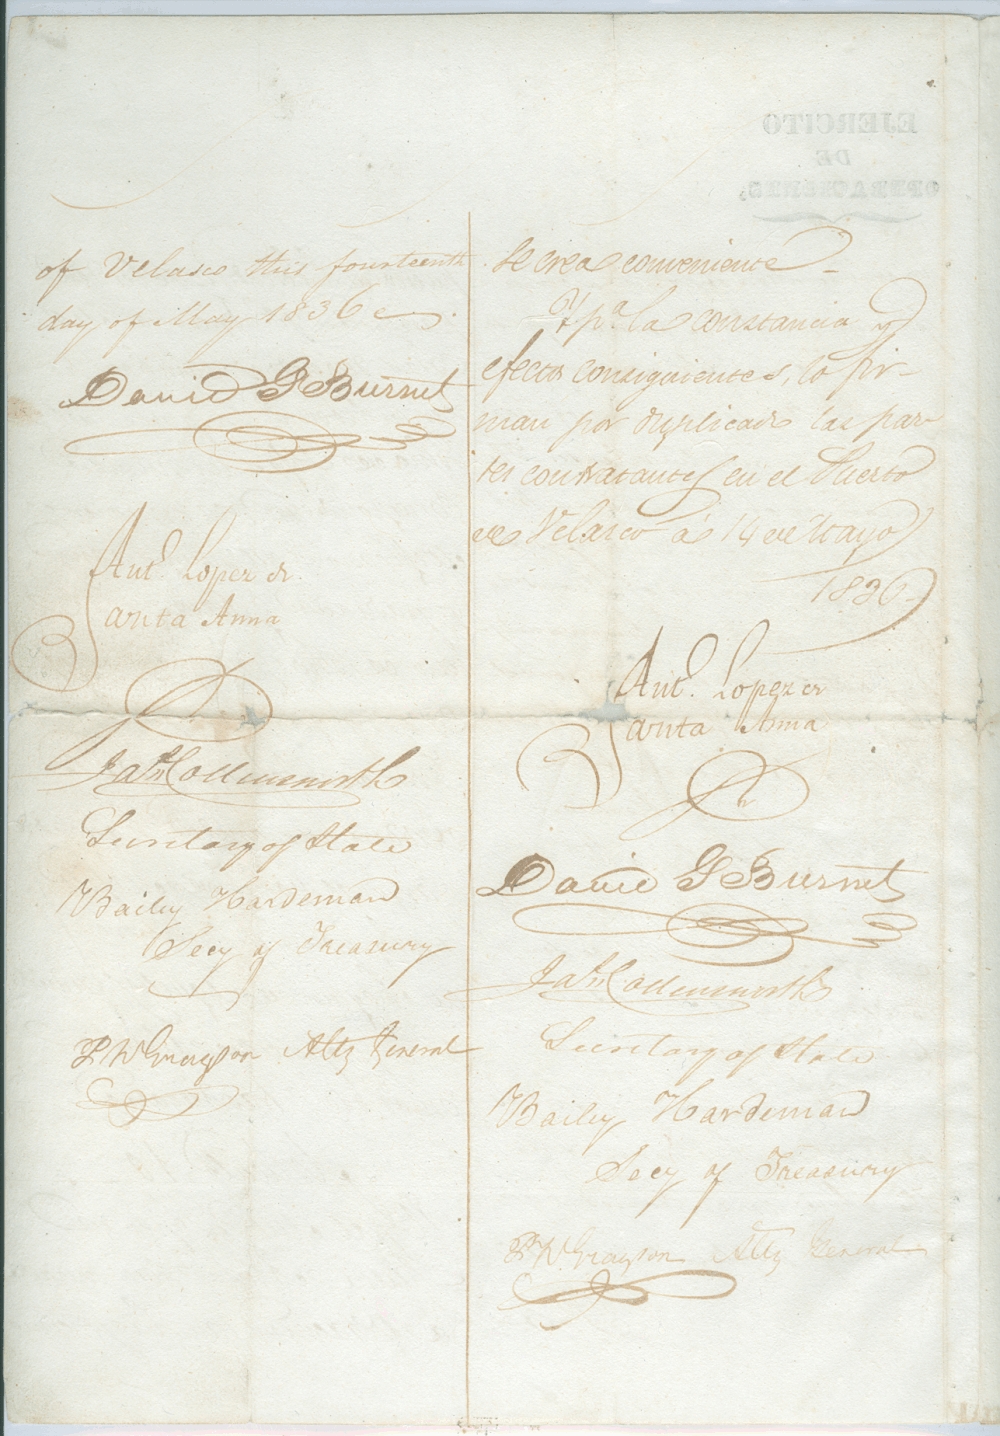 EJERCITO
DE
OPERACIONES,
of Velasco this fourteenth
day of May 1836
David G Burnet
Ant.º Lopez de
Santa Anna
Jas Collinsworth
Secretary of State
Bailey Hardeman
Secy of Treasury
P W Grayson Atty General
se crea conveniente
Y p.ª la constancia y
efectos consiguientes, lo fir-
man por duplicado las par-
tes contratantes en el Puerto
de Velasco á 14 de Mayo
1836.
Ant.º Lopez de
Santa Anna
David G Burnet
Jas Collinsworth
Secretary of State
Bailey Hardeman
Secy of Treasury
P W Grayson Atty General